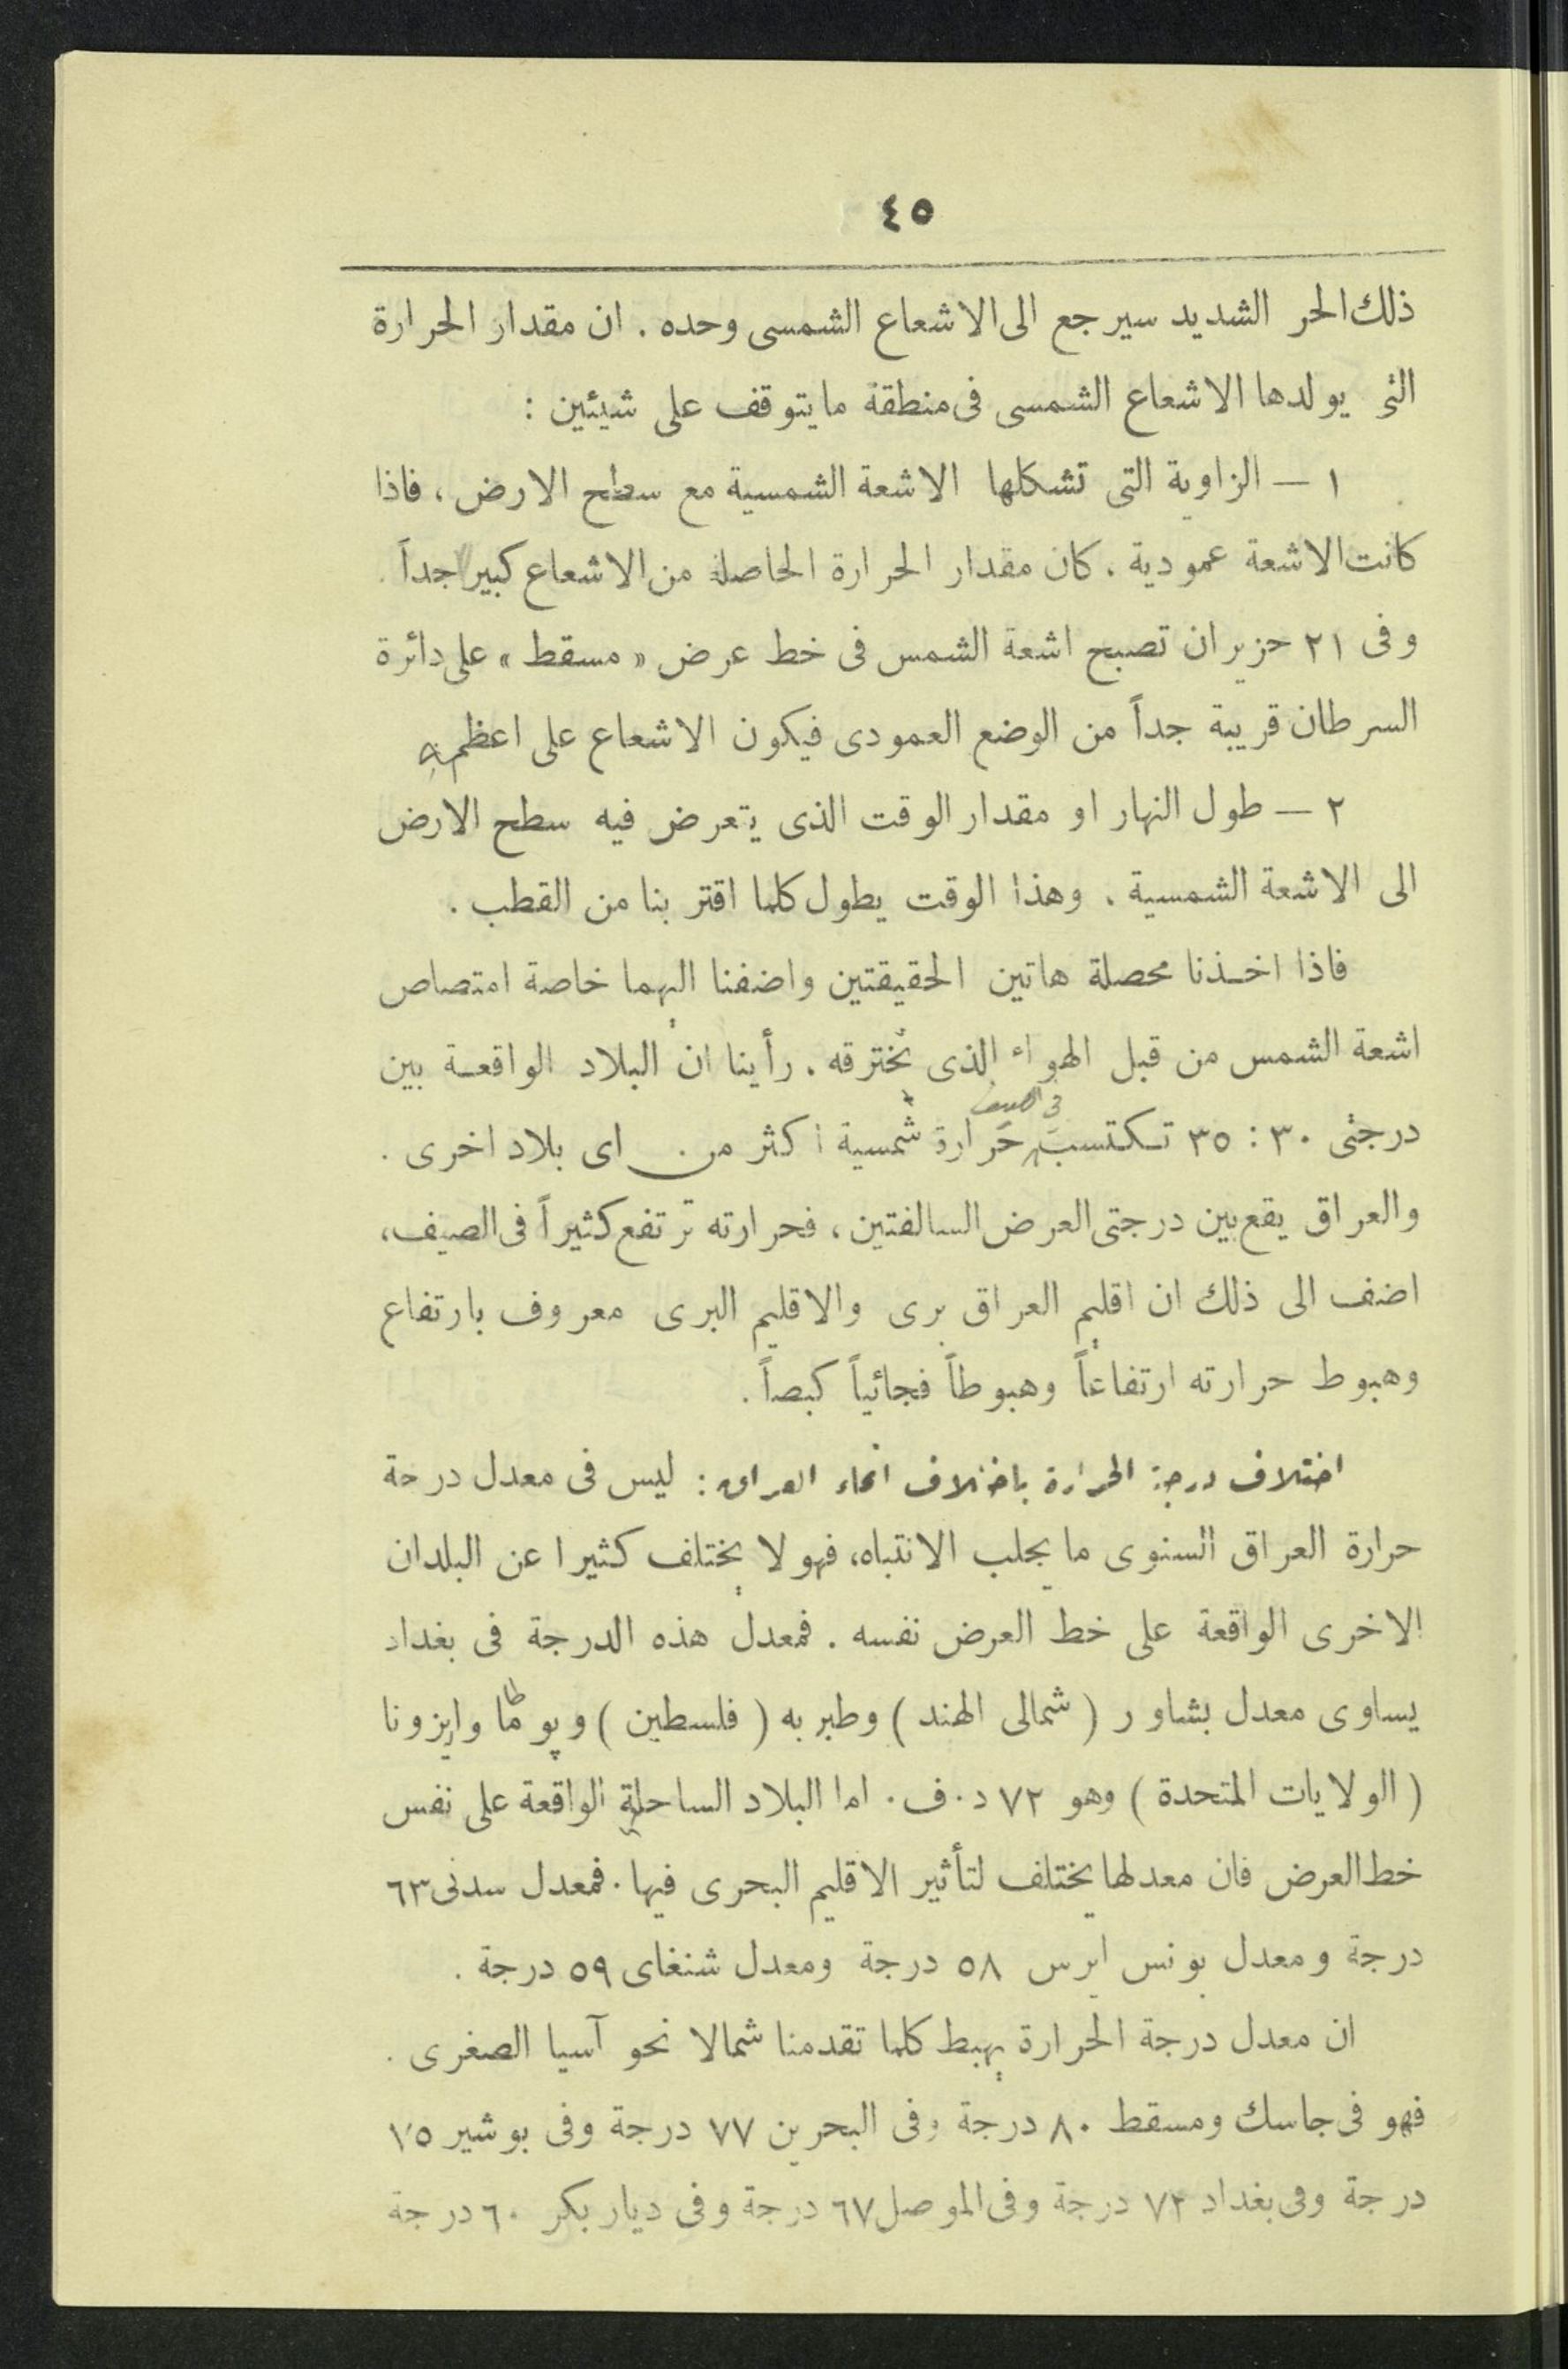 ٤٥
ذلك الحر الشديد سيرجع الى الاشعاع الشمسى وحده . ان مقدار الحرارة
التى يولدها الاشعاع الشمسى فى منطقة ما يتوقف على شيئين :
١ — الزاوية التى تشكلها الاشعة الشمسية مع سطح الارض ، فاذا
كانت الاشعة عمودية ، كان مقدار الحرارة الحاصلة من الاشعاع كبيرا جداً .
وفى ٢١ حزيران تصبح اشعة الشمس فى خط عرض « مسقط » على دائرة
السرطان قريبة جداً من الوضع العمودى فيكون الاشعاع على اعظمه
٢ — طول النهار او مقدار الوقت الذى يتعرض فيه سطح الارض
الى الاشعة الشمسية . وهذا الوقت يطول كلما اقتربنا من القطب .
فاذا اخذنا محصلة هاتين الحقيقتين واضفنا اليهما خاصة امتصاص
اشعة الشمس من قبل الهواء الذى تخترقه . رأينا ان البلاد الواقعة بين
فى الصيف
درجتى ٣٠ : ٣٥ تكتسب حرارة شمسية اكثر من اى بلاد اخرى .
والعراق يقع بين درجتى العرض السالفتين ، فحرارته ترتفع كثيراً فى الصيف ،
اضف الى ذلك ان اقليم العراق برى والاقليم البرى معروف بارتفاع
وهبوط حرارته ارتفاعاً وهبوطاً فجائياً كبصاً .
اختلاف درجة الحرارة باختلاف انحاء العراق : ليس فى معدل درجة
حرارة العراق السنوى ما يجلب الانتباه، فهو لا يختلف كثيرا عن البلدان
الاخرى الواقعة على خط العرض نفسه . فمعدل هذه الدرجة فى بغداد
يساوى معدل بشاور ( شمالى الهند ) وطبريه ( فلسطين ) و وايزونا
( الولايات المتحدة ) وهو ٧٢ د . ف . اما البلاد الساحلية الواقعة على نفس
خط العرض فان معدلها يختلف لتأثير الاقليم البحرى فيها . فمعدل سدنى ٦٣
درجة ومعدل بونس ايرس ٥٨ درجة ومعدل شنغاى ٥٩ درجة .
ان معدل درجة الحرارة يهبط كلما تقدمنا شمالا نحو آسيا الصغرى .
فهو فى جاسك ومسقط ٨٠ درجة وفى البحرين ٧٧ درجة وفى بوشير ٧٥
درجة وفى بغداد ٧٢ درجة وفى الموصل ٦٧ درجة وفى ديار بكر ٦٠ درجة